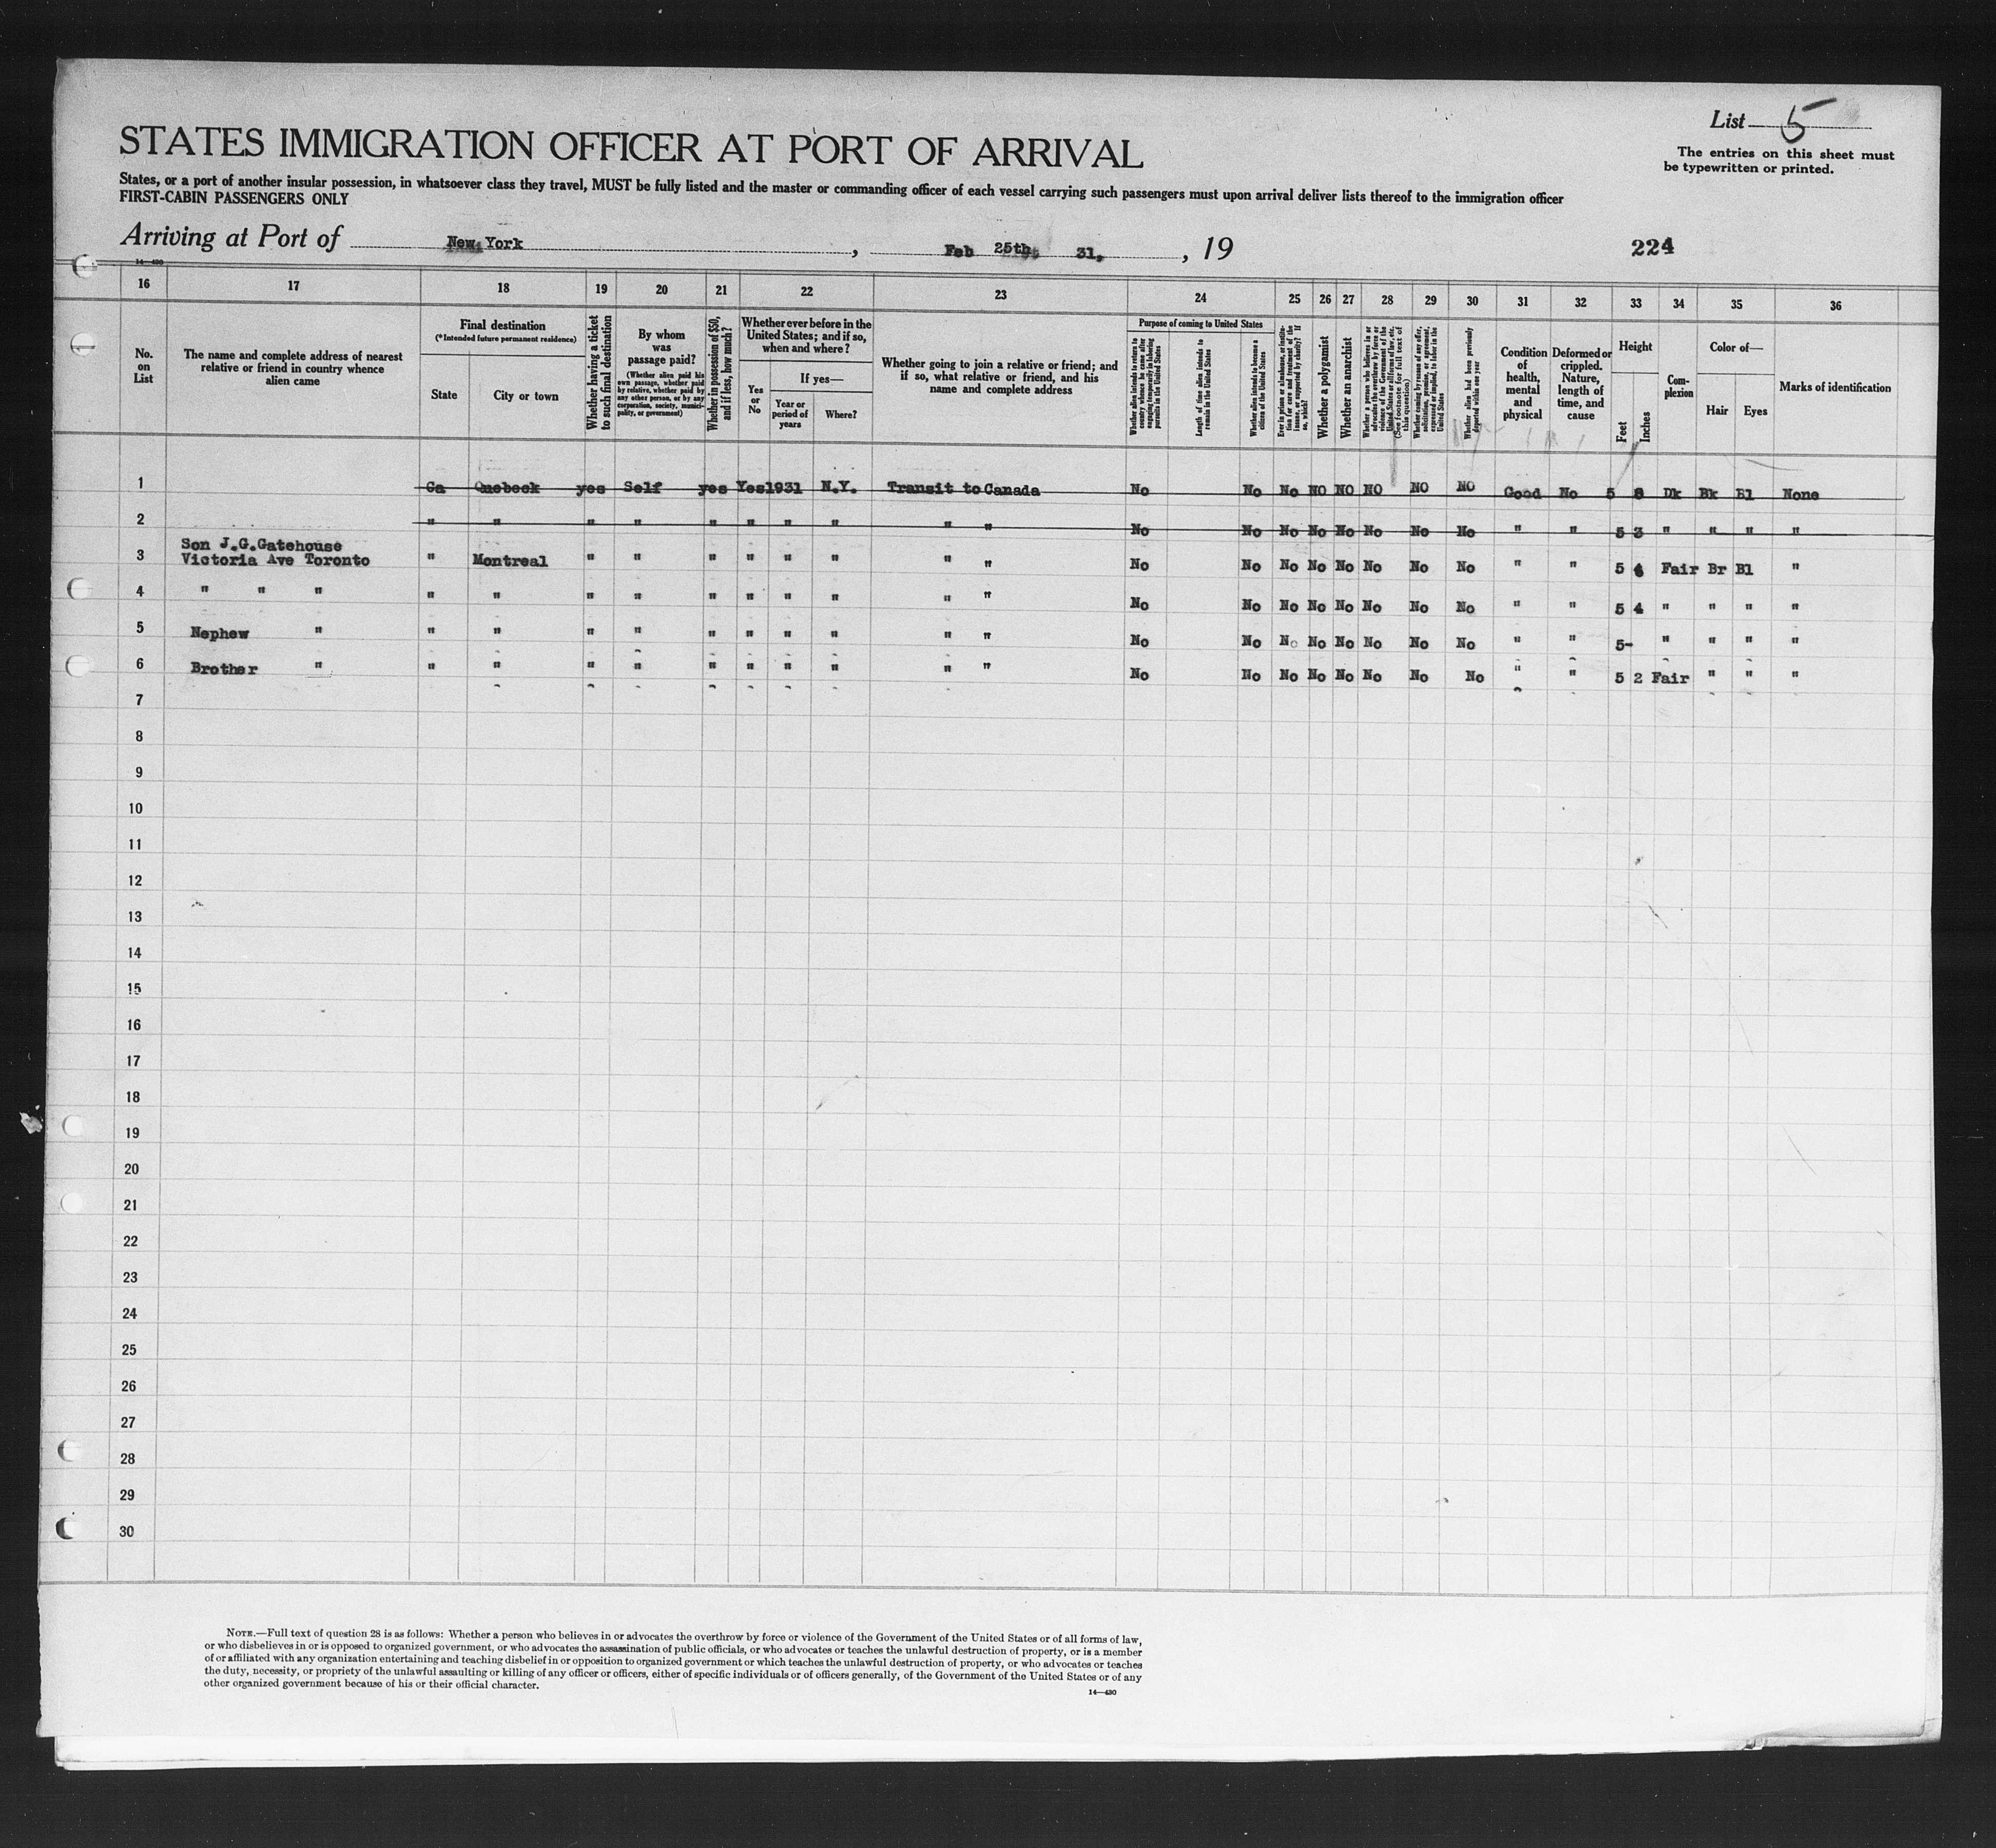 List 5
The entries on this sheet must
be typewritten or printed.
STATES IMMIGRATION OFFICER AT PORT OF ARRIVAL
States, or a port of another insular possession, in whatsoever class they travel, MUST be fully listed and the master or commanding officer of each vessel carrying such passengers must upon arrival deliver lists thereof to the immigration officer
FIRST-CABIN PASSENGERS ONLY
Arriving at Port of New York, Feb 25th, 31, , 19
224
14—430
16 17 18 19 20 21 22 23 24 25 26 27 28 29 30 31 32 33 34 35 36
No.
on
List
The name and complete address of nearest
relative or friend in country whence
alien came
Final destination
(*Intended future permanent residence)
State
City or town
Whether having a ticket
to such final destination
By whom
was
passage paid?
(Whether alien paid his
own passage, whether paid
by relative, whether paid by
any other person, or by any
corporation, society, munici-
pality, or government)
Whether in possession of $50,
and if less, how much?
Whether ever before in the
United States; and if so,
when and where?
Yes
or
No
If yes—
Year or
period of
years
Where?
Whether going to join a relative or friend; and
if so, what relative or friend, and his
name and complete address
Purpose of coming to United States
Whether alien intends to return to
country whence he came after
engaging temporarily in laboring
pursuits in the United States
Length of time alien intends to
remain in the United States
Whether alien intends to become a
citizen of the United States
Ever in prison or almshouse, or institu-
tion for care and treatment of the
insane, or supported by charity? If
so, which?
Whether a polygamist
Whether an anarchist
Whether a person who believes in or
advocates the overthrow by force or
violence of the Government of the
United States or all forms of law, etc.
(See footnote for full text of
this question)
Whether coming by reason of any offer,
solicitation, promise, or agreement,
expressed or implied, to labor in the
United States
Whether alien had been previously
deported within one year
Condition
of
health,
mental
and
physical
Deformed or
crippled.
Nature,
length of
time, and
cause
Height
Feet
Inches
Com-
plexion
Color of—
Hair
Eyes
Marks of identification
1 Ca Quebeck yes Self yes Yes 1931 N.Y. Transit to Canada No No No NO NO NO NO NO Good No 5 8 Dk Bk Bl None
2 " " " " " " " " " " No No No No No No No No " " 5 3 " " " "
Son J.G.Gatehouse
3 Victoria Ave Toronto " Montreal " " " " " " " " No No No No No No No No " " 5 Fair Br Bl "
4 " " " " " " " " " " " " " No No No No No No No No " " 5 4 " " " "
5 Nephew " " " " " " " " " " " No No No No No No No No " " 5- " " " "
6 Brother " " " " " " " " " " " No No No No No No No No " " 5 2 Fair " " "
7
8
9
10
11
12
13
14
15
16
17
18
19
20
21
22
23
24
25
26
27
28
29
30
NOTE.—Full text of question 28 is as follows: Whether a person who believes in or advocates the overthrow by force or violence of the Government of the United States or of all forms of law,
or who disbelieves in or is opposed to organized government, or who advocates the assassination of public officials, or who advocates or teaches the unlawful destruction of property, or is a member
of or affiliated with any organization entertaining and teaching disbelief in or opposition to organized government or which teaches the unlawful destruction of property, or who advocates or teaches
the duty, necessity, or propriety of the unlawful assaulting or killing of any officer or officers, either of specific individuals or of officers generally, of the Government of the United States or of any
other organized government because of his or their official character.
14—430